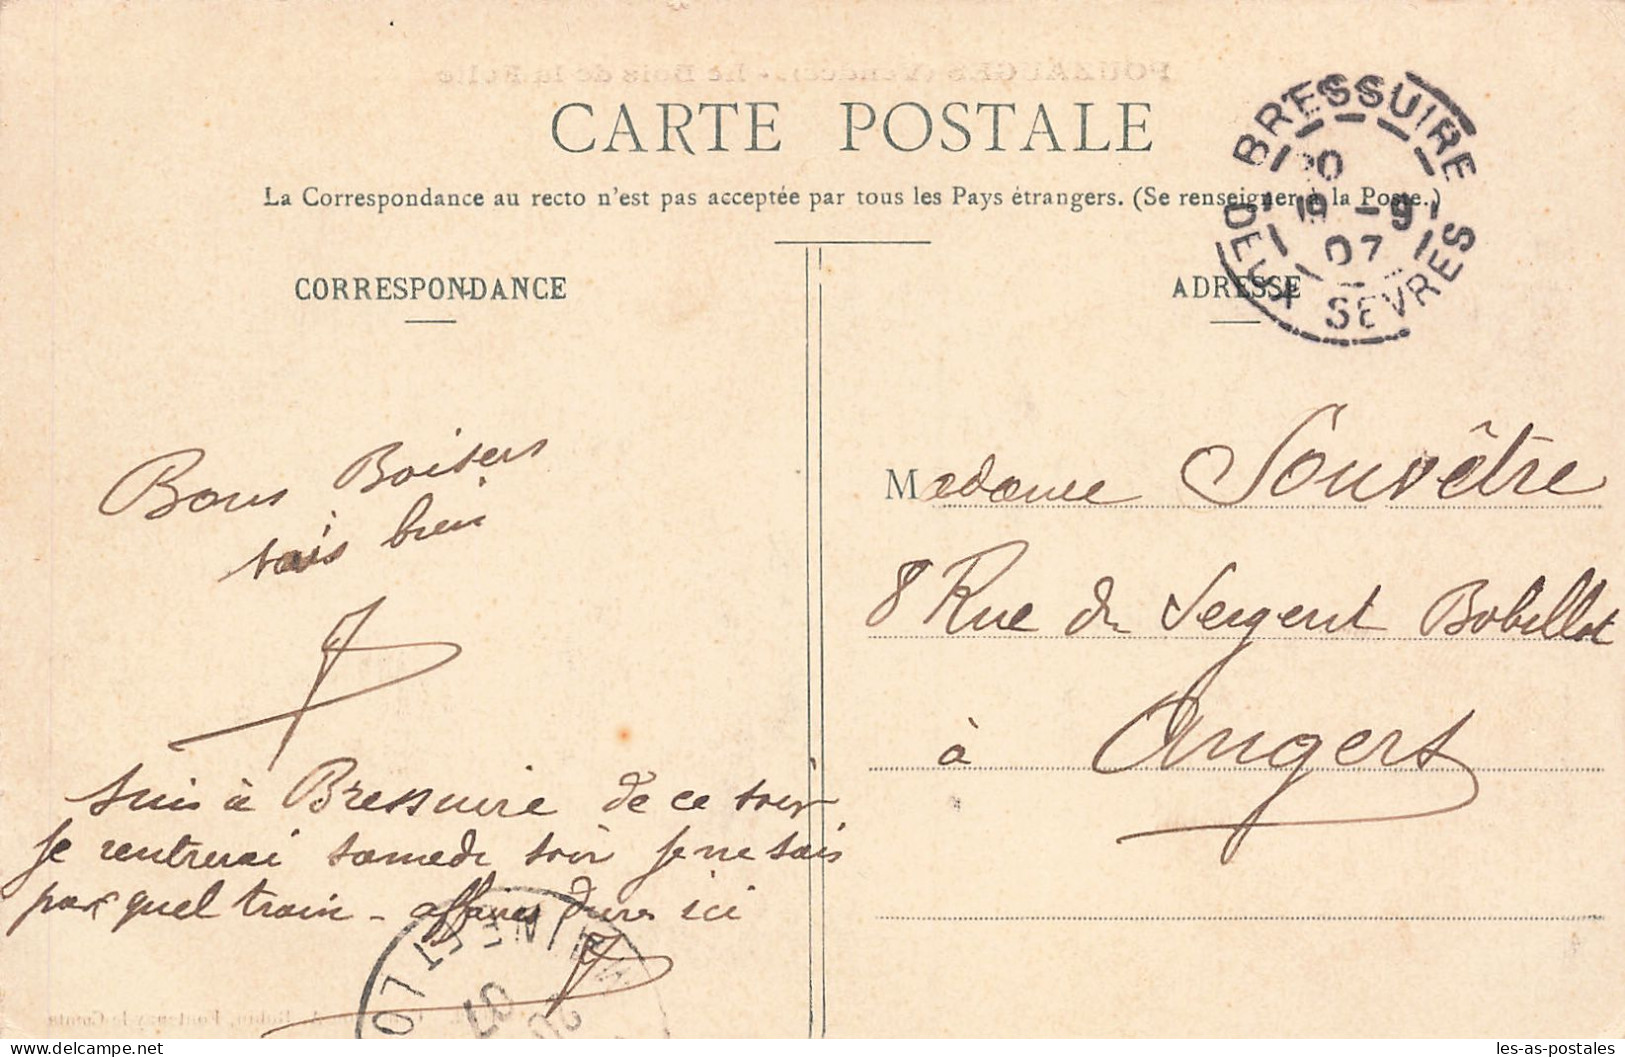 POUZAUGES (Vendée). - Le Bois de la Folie
CARTE POSTALE
La Correspondance au recto n'est pas acceptée par tous les Pays étrangers. (Se renseigner à la Poste.)
BRESSUIRE
20
19 -9
07
DEUX SEVRES
CORRESPONDANCE
ADRESSE
Bons Baisers
vais bien
suis à Bressuire de ce soir
je rentrerai samedi soir je ne sais
par quel train - affaires dures ici
Madame Souvêtre
8 Rue du Sergent Bobillot
à Angers
MAINE ET LO
07
20
Robin, Fontenay-le-Comte
les-as-postales